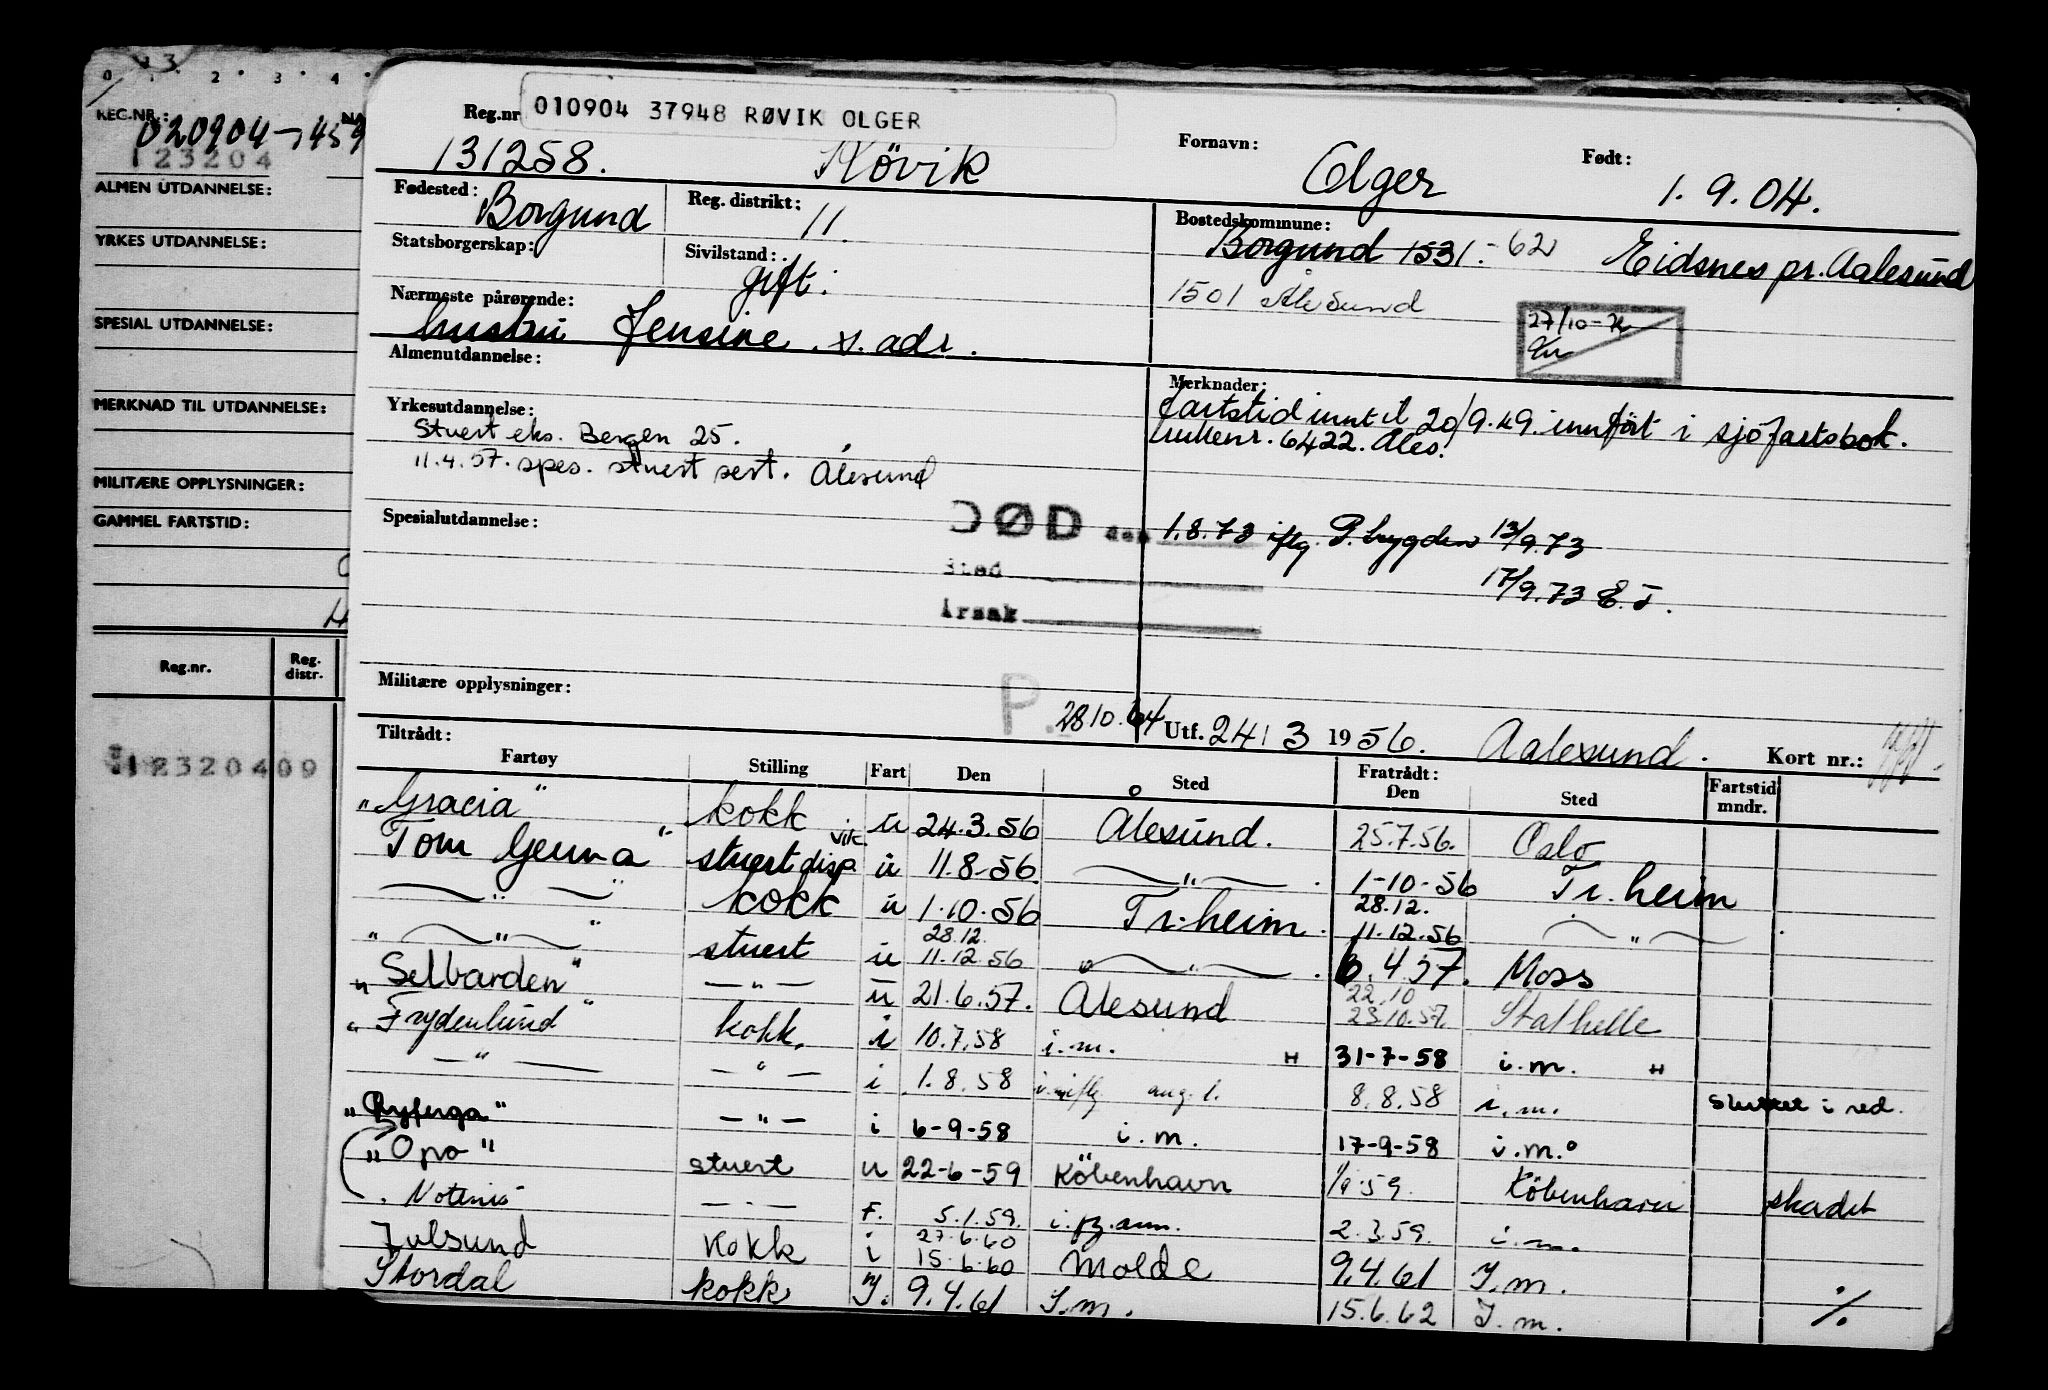 0 1 2 3 4
REG.NR.:
123204
ALMEN UTDANNELSE:
YRKES UTDANNELSE:
SPESIAL UTDANNELSE:
MERKNAD TIL UTDANNELSE:
MILITÆRE OPPLYSNINGER:
GAMMEL FARTSTID:
Reg.nr. Reg. distr.
12320409
Reg.nr 010904 37948 RØVIK OLGER Fornavn: Født:
131258. Rövik Olger 1.9.04.
Fødested: Borgund Reg. distrikt: 11. Bostedskommune:
Borgund 1531.-62 Eidsnes pr. Aalesund
Statsborgerskap: Sivilstand: gift.
1501 Ålesund
Nærmeste pårørende:
hustru Jensine s. adr.
27/10-
Almenutdannelse: Merknader:
fartstid inntil 20/9.49. innfört i sjöfartsbok.
Yrkesutdannelse:
rullenr. 6422. Ales.
Stuert eks. Bergen 25.
11.4.57. spes. stuert sert. Ålesund
Spesialutdannelse:
DØD den 1.8.73 iflg. P. trygden 13/9.73
Sted 17/9.73 E.T.
Årsak
Militære opplysninger:
P. 2810.64 Utf. 24 / 3 1956. Aalesund. Kort nr.:
Tiltrådt: Fratrådt:
Fartøy Stilling Fart Den Sted Den Sted Fartstid mndr.
"Gracia" kokk u 24.3.56 Ålesund. 25.7.56. Oslo
Tom Gunna" stuert disp. vik. u 11.8-56. —"— 1-10-56 Tr.heim
—"— kokk u 1.10.56 Tr.heim. 28.12. 11.12.56 —"—
"—"—" stuert u 28.12. 11.12.56 —"— 6.4.57. Moss
"Selbarden" —"— u 21.6.57. Ålesund 22.10 23.10.57. Stathelle
"Frydenlund" kokk. i 10.7.58 i.m. H 31-7-58 i.m. H
—"— —"— i 1.8.58 aug. l. 8.8.58 i.m. Sluttet i red.
"Ryferga" —"— i 6-9-58 i.m. 17-9-58 i.m.
"Opo" stuert u 22-6-59 Köbenhavn 59. Köbenhavn skadet
—"— F. 5.1.59. 2.3.59. i.m.
Julsund kokk i 27.6.60 15.6.60 Molde 9.4.61 I.m.
Stordal kokk I. 9.4.61 I.m. 15.6.62 I.m. ./.